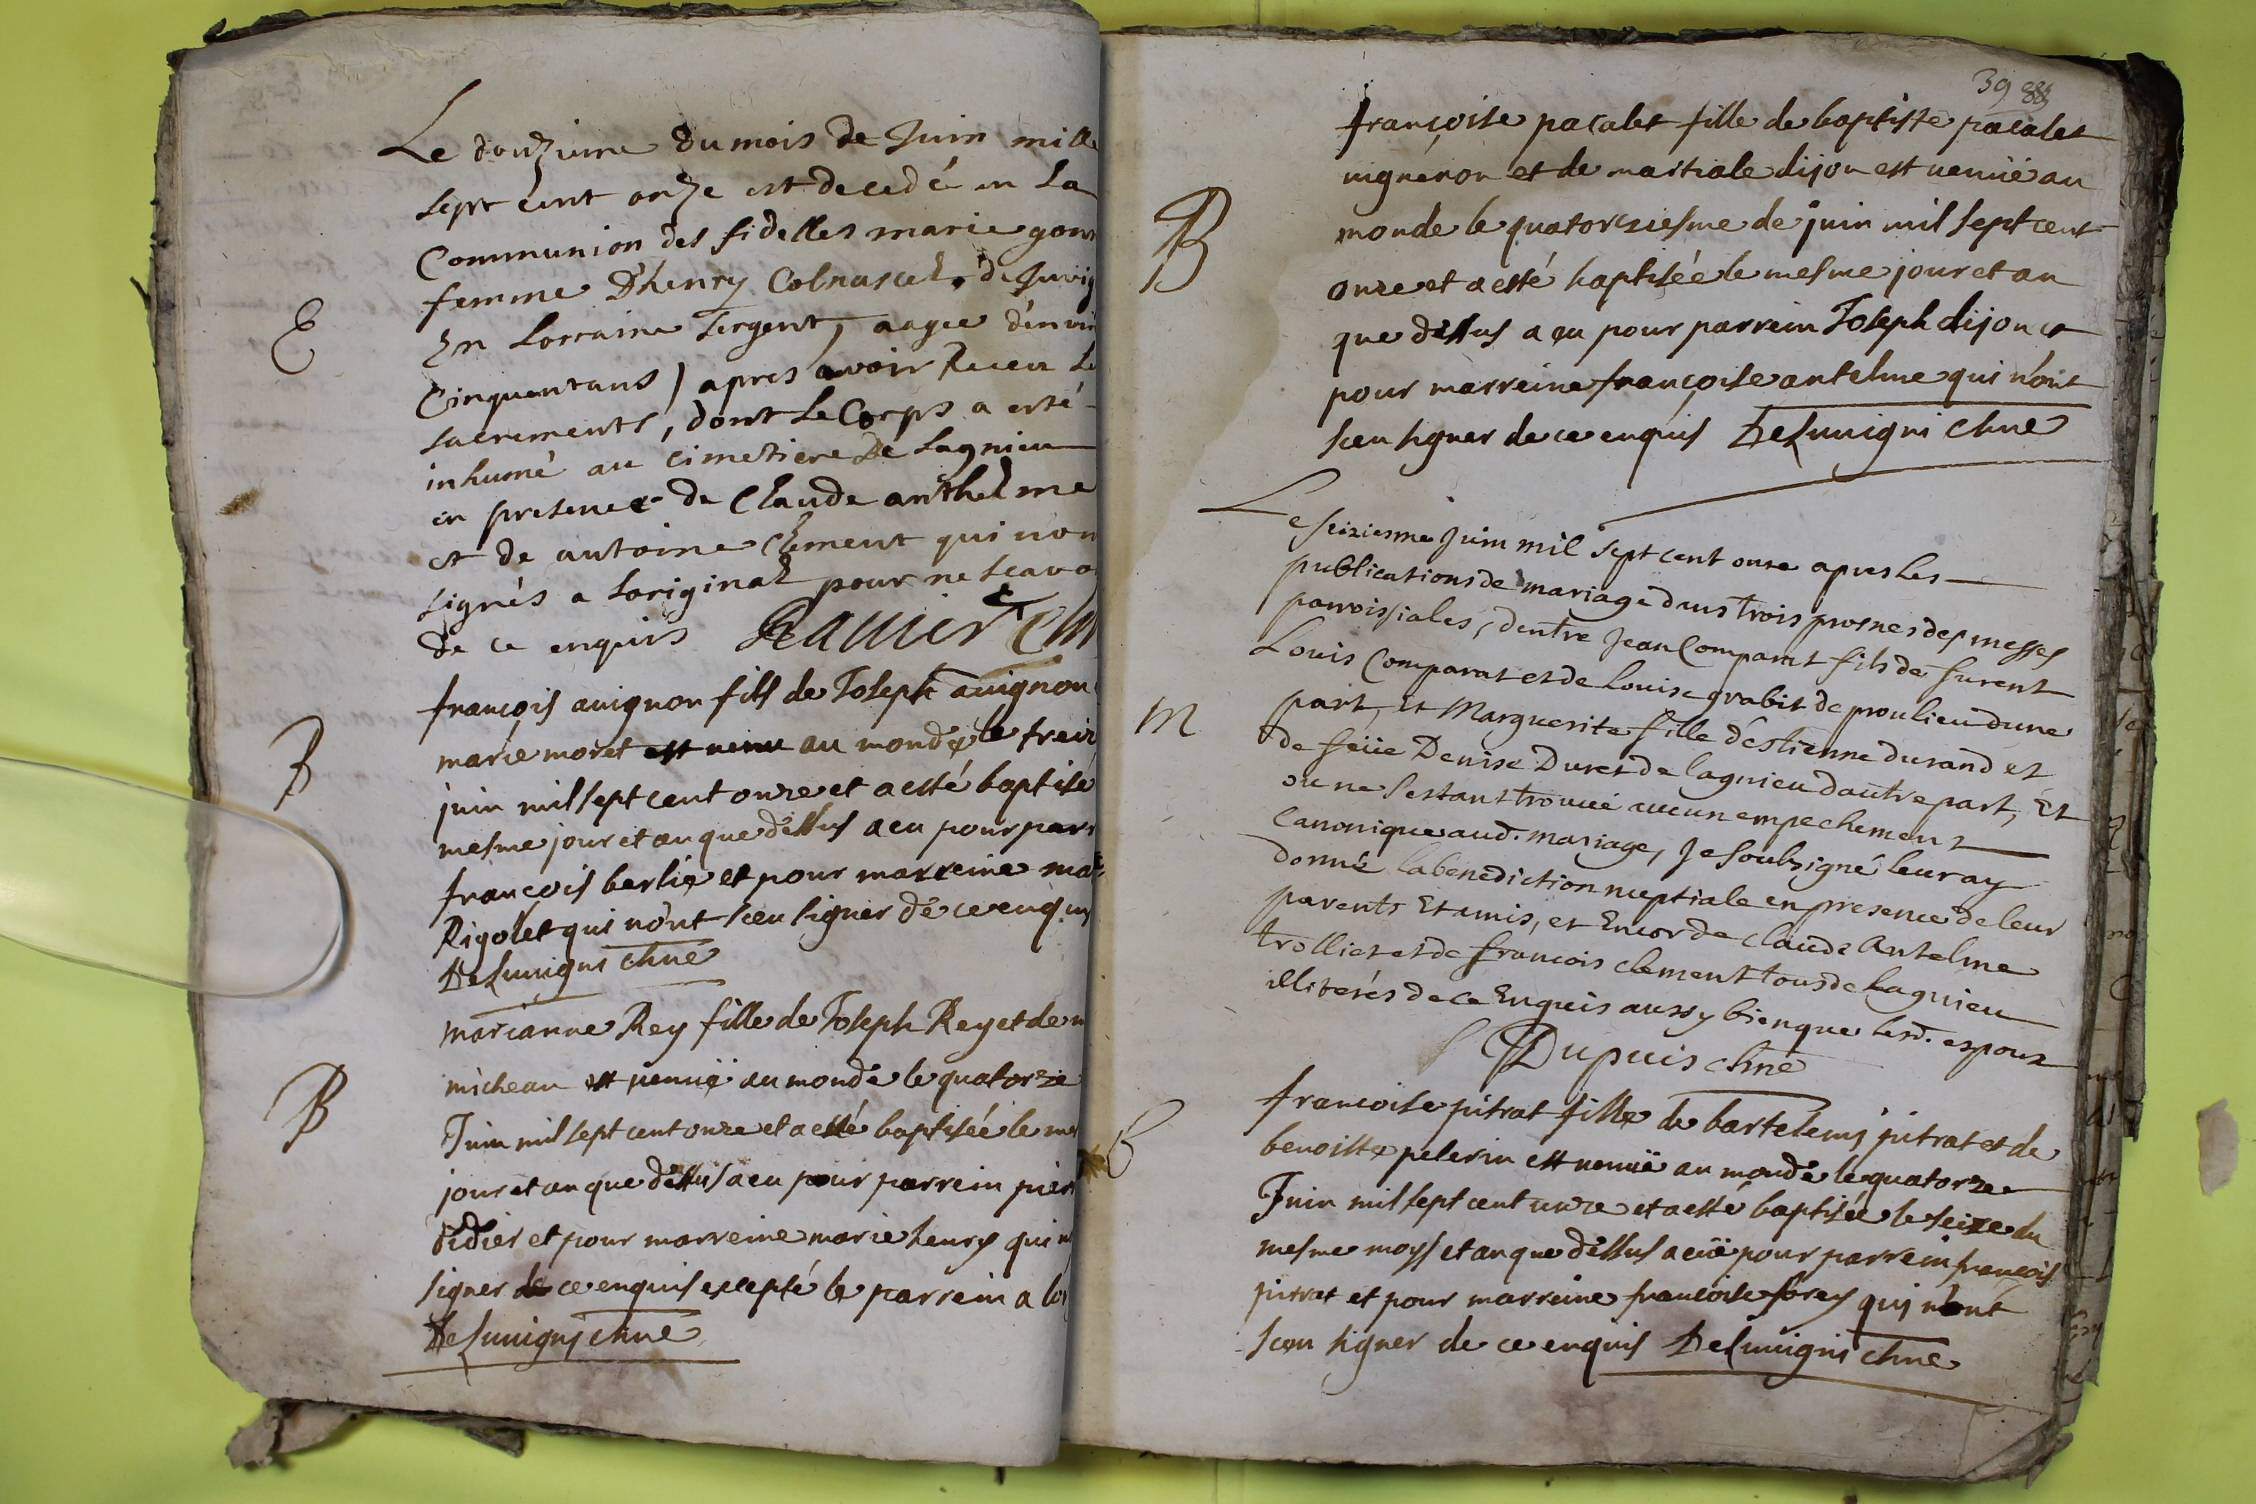 Le douzieme du mois de Juin mille
sept cent onze est decedé en La
Communion des fidelles marie
femme D'henry Colnuscel de
En Lorraine sergent, aagée d'
Cinquantans) apres avoir Receu
sacrements, dont Le Corps a esté
E
inhumé au cimetiere De Lagnieu
en presence de Claude anthelme
et de antoine Clement qui
signés a Loriginal pour ne
de ce enquis Ramier
françois auignon fils de Joseph auignon
marie moret est venu au monde le
B
juin mil sept cent onze et a esté baptisé
mesme jour et an que dessus a eu pour
francois berlie et pour marreine
Rigolet qui n'ont sceu signer de ce
DeLuuigni chne
marianne Rey fille de Joseph Rey et de
micheau est venuë au monde le quatorze
B
Juin mil sept cent onze et a esté baptisée le
jour et an que dessus a eu pour parrein
didier et pour marreine marie henry qui
signer de ce enquis excepté le parrein a
DeLuuigni chne
39
françoise pacalet fille de baptiste pacalet
uigneron et de martiale dijon est uenuë au
B
monde le quatorsiesme de juin mil sept cent
onze et a esté baptisée le mesme jour et an
que dessus a eu pour parrein Joseph dijon et
pour marreine françoise antelme qui n'ont
sceu signer de ce enquis DeLuuigni chne
Le seiziesme Juin mil sept cent onze apres les
publications de mariage dans trois prosnes des messes
parroissiales, dentre Jean Comparat fils de furent
Louis Comparat et de Louise grabit de proulieu dune
M
part, et Marguerite fille d'estienne durand et
de feüe Denise Duret de lagnieu dautre part, Et
ou ne sestant trouué aucun empechement
Canonique aud. mariage, Je soubsigné leur ay
donné la benediction nuptiale en presence de leur
parents Et amis, et Encor de Claude Antelme
trolliet et de françois clement tous de Lagnieu
illiterés de ce Enquis aussy bien que lesd. espoux
Dupuis chne
francoise pitrat fille de bartelemy pitrat et de
B
benoiste pelerin est uenuë au monde le quatorze
Juin mil sept cent onze et a esté baptisée le seize du
mesme moys et an que dessus a eüe pour parrein françois
pitrat et pour marreine francoise forey qui n'ont
sceu signer de ce enquis DeLuuigni chne